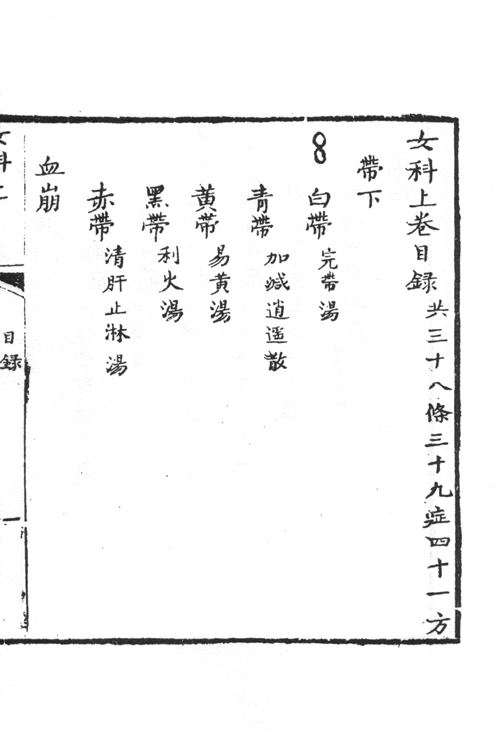 女科上卷目録 共三十八條三十九症四十一方
帶下
8
白帶 完帶湯
青帶 加減逍遥散
黃帶 易黃湯
黑帶 利火湯
赤帶 清肝止淋湯
血崩
女科上
目録
一